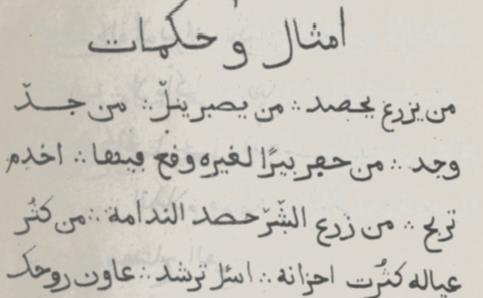 امثال وحكمات
من يزرع يحصد ∴ من يصبر ينلّ ∴ من جدّ
وجد ∴ من حفر بيرًا لغيره وقع فيها ∴ اخدم
تربح ∴ من زرع الشّرّ حصد الندامة ∴ من كثُر
عياله كثُرت احزانة ∴ اسئل ترشد ∴ عاون روحك